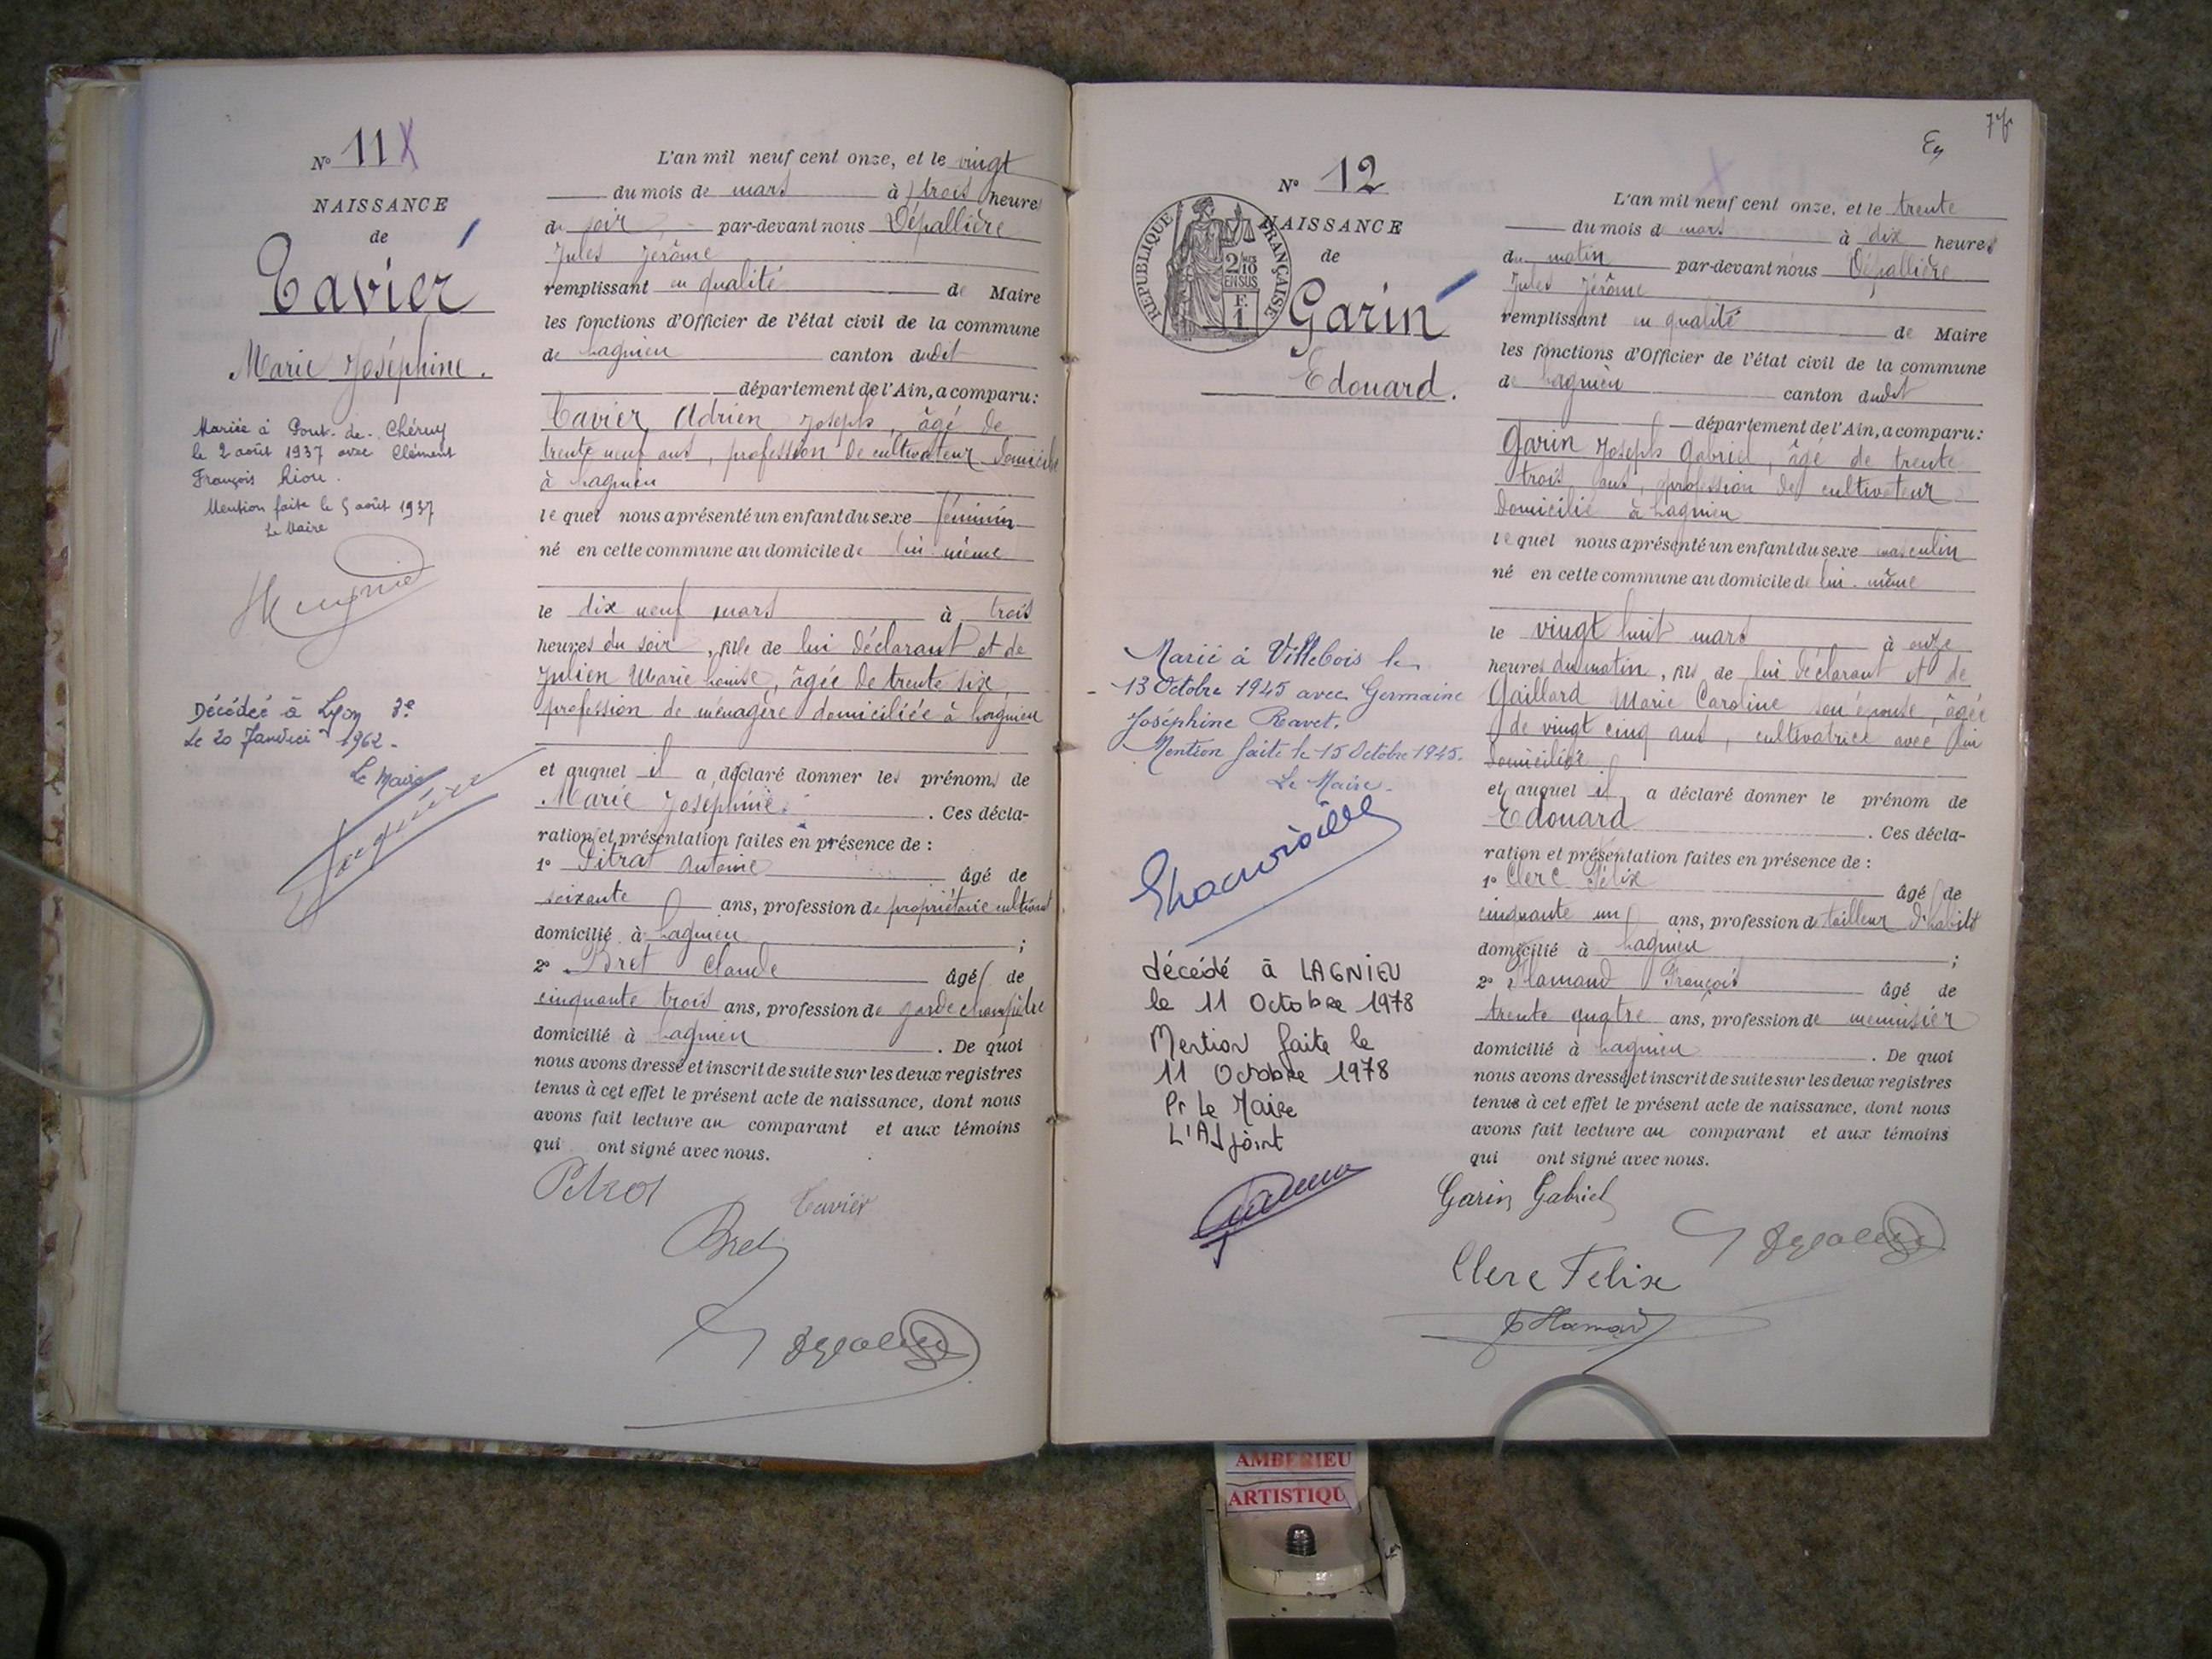 N° 11
NAISSANCE
de
Tavier
Marie Joséphine.
Mariée à Pont-de-Chéruy
le 2 août 1937 avec Clément
François Riou.
Mention faite le 5 août 1937
Le Maire
Décédée à Lyon 3e
Le 20 Janvier 1962.
Le Maire
L'an mil neuf cent onze, et le vingt
du mois de mars à trois heures
du soir par-devant nous Dépallière
Jules Jérôme
remplissant en qualité de Maire
les fonctions d'Officier de l'état civil de la commune
de Lagnieu canton dudit
département de l'Ain, a comparu:
Tavier Adrien Joseph, âgé de
trente neuf ans, profession de cultivateur domicilié
à Lagnieu
lequel nous a présenté un enfant du sexe féminin
né en cette commune au domicile de lui-même
le dix neuf mars à trois
heures du soir, fille de lui déclarant et de
Julien Marie Louise, âgée de trente six,
profession de ménagère domiciliée à Lagnieu
et auquel il a déclaré donner les prénoms de
Marie Joséphine. Ces décla-
ration et présentation faites en présence de :
1° Pitrat Antoine âgé de
soixante ans, profession de propriétaire cultivant
domicilié à Lagnieu ;
2° Bret Claude âgé de
cinquante trois ans, profession de garde champêtre
domicilié à Lagnieu. De quoi
nous avons dressé et inscrit de suite sur les deux registres
tenus à cet effet le présent acte de naissance, dont nous
avons fait lecture au comparant et aux témoins
qui ont signé avec nous.
Pitrat
Tavier
Bret
N° 12
NAISSANCE
de
RÉPUBLIQUE FRANÇAISE
2/10
EN SUS
F.
1
Garin
Edouard.
Marié à Villebois le
13 Octobre 1945 avec Germaine
Joséphine Ravet.
Mention faite le 15 Octobre 1945.
Le Maire.
décédé à LAGNIEU
le 11 Octobre 1978
Mention faite le
11 Octobre 1978
Pr Le Maire
L'Adjoint
L'an mil neuf cent onze, et le trente
du mois de mars à dix heures
du matin par-devant nous Dépallière
Jules Jérôme
remplissant en qualité de Maire
les fonctions d'Officier de l'état civil de la commune
de Lagnieu canton dudit
département de l'Ain, a comparu:
Garin Joseph Gabriel, âgé de trente
trois ans, profession de cultivateur
domicilié à Lagnieu
lequel nous a présenté un enfant du sexe masculin
né en cette commune au domicile de lui-même
le vingt huit mars à onze
heures du matin, fils de lui déclarant et de
Gaillard Marie Caroline son épouse, âgée
de vingt cinq ans, cultivatrice avec lui
domiciliée
et auquel il a déclaré donner le prénom de
Edouard. Ces décla-
ration et présentation faites en présence de :
1° Clerc Félix âgé de
cinquante un ans, profession de tailleur d'habits
domicilié à Lagnieu ;
2° Flamand François âgé de
trente quatre ans, profession de menuisier
domicilié à Lagnieu. De quoi
nous avons dressé et inscrit de suite sur les deux registres
tenus à cet effet le présent acte de naissance, dont nous
avons fait lecture au comparant et aux témoins
qui ont signé avec nous.
Garin Gabriel
Clerc Felix
AMBERIEU
ARTISTIQU